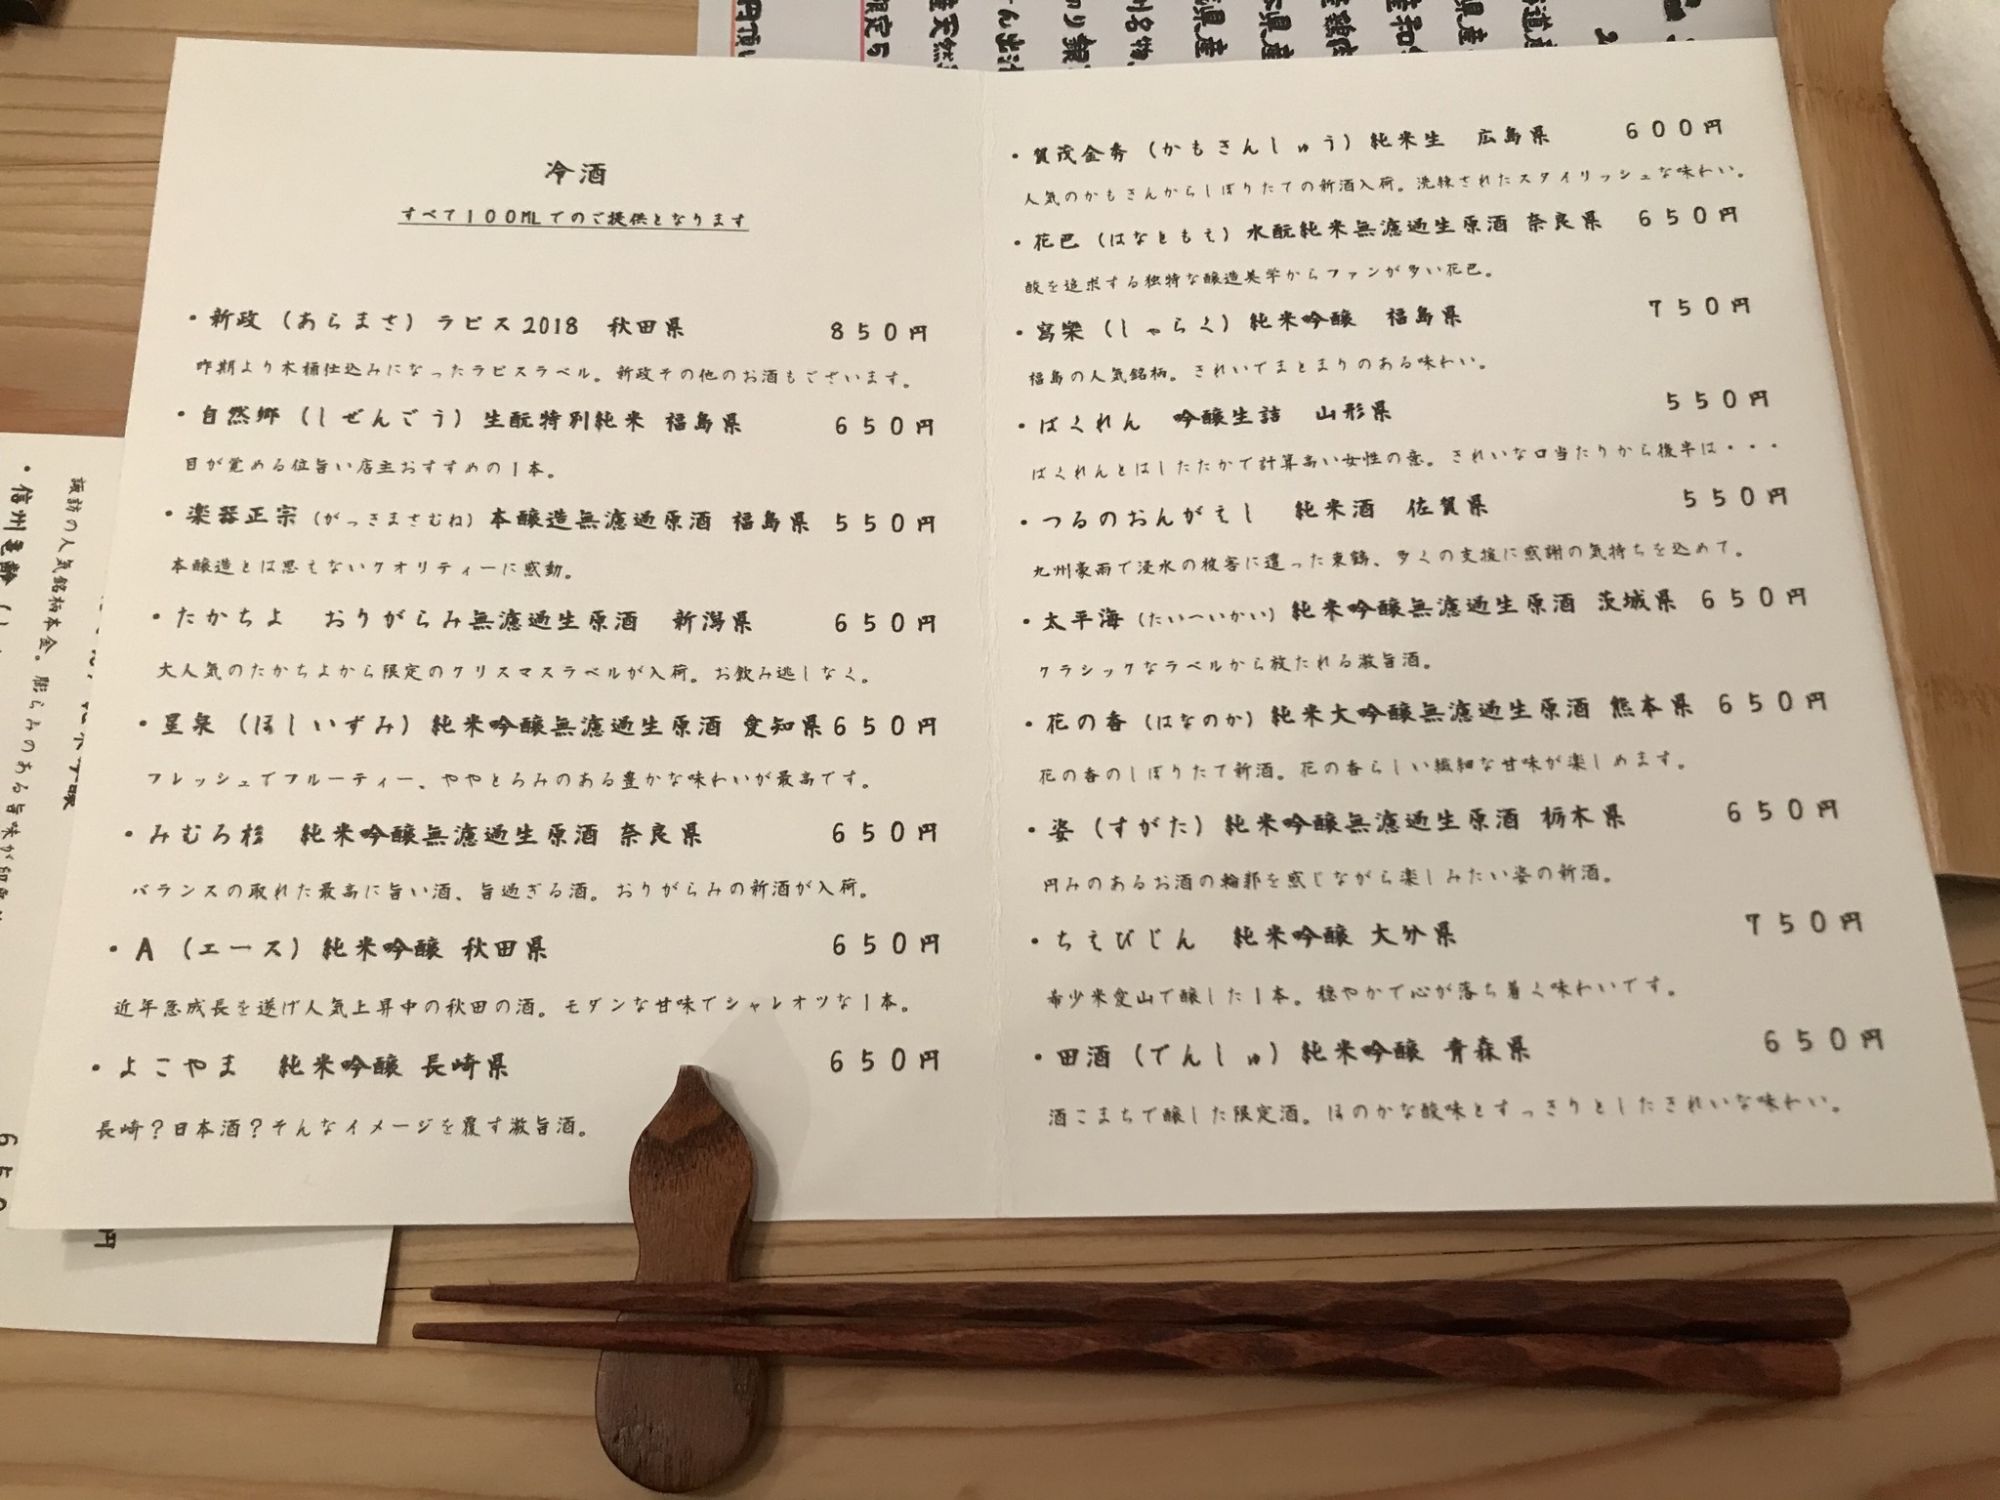 冷酒
すべて100MLでのご提供となります
・新政（あらまさ）ラピス2018　秋田県　850円
昨期より木桶仕込みになったラピスラベル。新政その他のお酒もございます。
・自然郷（しぜんごう）生酛特別純米 福島県　650円
目が覚める位旨い店主おすすめの1本。
・楽器正宗（がっきまさむね）本醸造無濾過原酒 福島県 550円
本醸造とは思えないクオリティーに感動。
・たかちよ　おりがらみ無濾過生原酒　新潟県　650円
大人気のたかちよから限定のクリスマスラベルが入荷。お飲み逃しなく。
・星泉（ほしいずみ）純米吟醸無濾過生原酒 愛知県650円
フレッシュでフルーティー、ややとろみのある豊かな味わいが最高です。
・みむろ杉　純米吟醸無濾過生原酒 奈良県　650円
バランスの取れた最高に旨い酒、旨過ぎる酒。おりがらみの新酒が入荷。
・A（エース）純米吟醸 秋田県　650円
近年急成長を遂げ人気上昇中の秋田の酒。モダンな甘味でシャレオツな1本。
・よこやま　純米吟醸 長崎県　650円
長崎？日本酒？そんなイメージを覆す激旨酒。
・賀茂金秀（かもきんしゅう）純米生　広島県　600円
人気のかもきんからしぼりたての新酒入荷。洗練されたスタイリッシュな味わい。
・花巴（はなともえ）水酛純米無濾過生原酒 奈良県　650円
酸を追求する独特な醸造美学からファンが多い花巴。
・寫樂（しゃらく）純米吟醸　福島県　750円
福島の人気銘柄。きれいでまとまりのある味わい。
・ばくれん　吟醸生詰　山形県　550円
ばくれんとはしたたかで計算高い女性の意。きれいな口当たりから後半は・・・
・つるのおんがえし　純米酒　佐賀県　550円
九州豪雨で浸水の被害に遭った東鶴、多くの支援に感謝の気持ちを込めて。
・太平海（たいへいかい）純米吟醸無濾過生原酒 茨城県 650円
クラシックなラベルから放たれる激旨酒。
・花の香（はなのか）純米大吟醸無濾過生原酒 熊本県 650円
花の香のしぼりたて新酒。花の香らしい繊細な甘味が楽しめます。
・姿（すがた）純米吟醸無濾過生原酒 栃木県　650円
円みのあるお酒の輪郭を感じながら楽しみたい姿の新酒。
・ちえびじん　純米吟醸 大分県　750円
希少米愛山で醸した1本。穏やかで心が落ち着く味わいです。
・田酒（でんしゅ）純米吟醸 青森県　650円
酒こまちで醸した限定酒。ほのかな酸味とすっきりとしたきれいな味わい。
諏訪の人気銘柄本金。膨らみのある旨味が
・信州亀齢（
650円